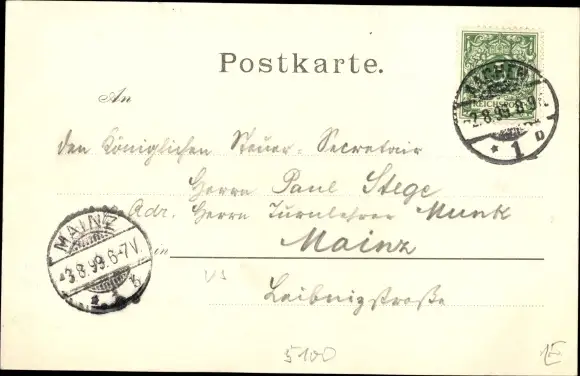 Postkarte.
REICHSPOST
AACHEN
2.8.99.8-9
* 1 D
An
den Königlichen Steuer-Secretair
Herrn Paul Stege
Adr. Herrn Turnlehrer Munk
in Mainz
Leibnizstraße
MAINZ
3.8.99.6-7V.
* 1 b
5100